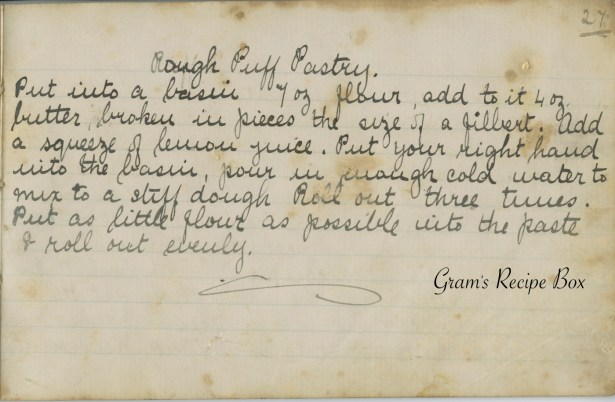 27
Rough Puff Pastry.
Put into a basin 7 oz flour, add to it 4 oz.
butter, broken in pieces the size of a filbert. Add
a squeeze of lemon juice. Put your right hand
into the basin, pour in enough cold water to
mix to a stiff dough Roll out three times.
Put as little flour as possible into the paste
& roll out evenly.
Gram's Recipe Box